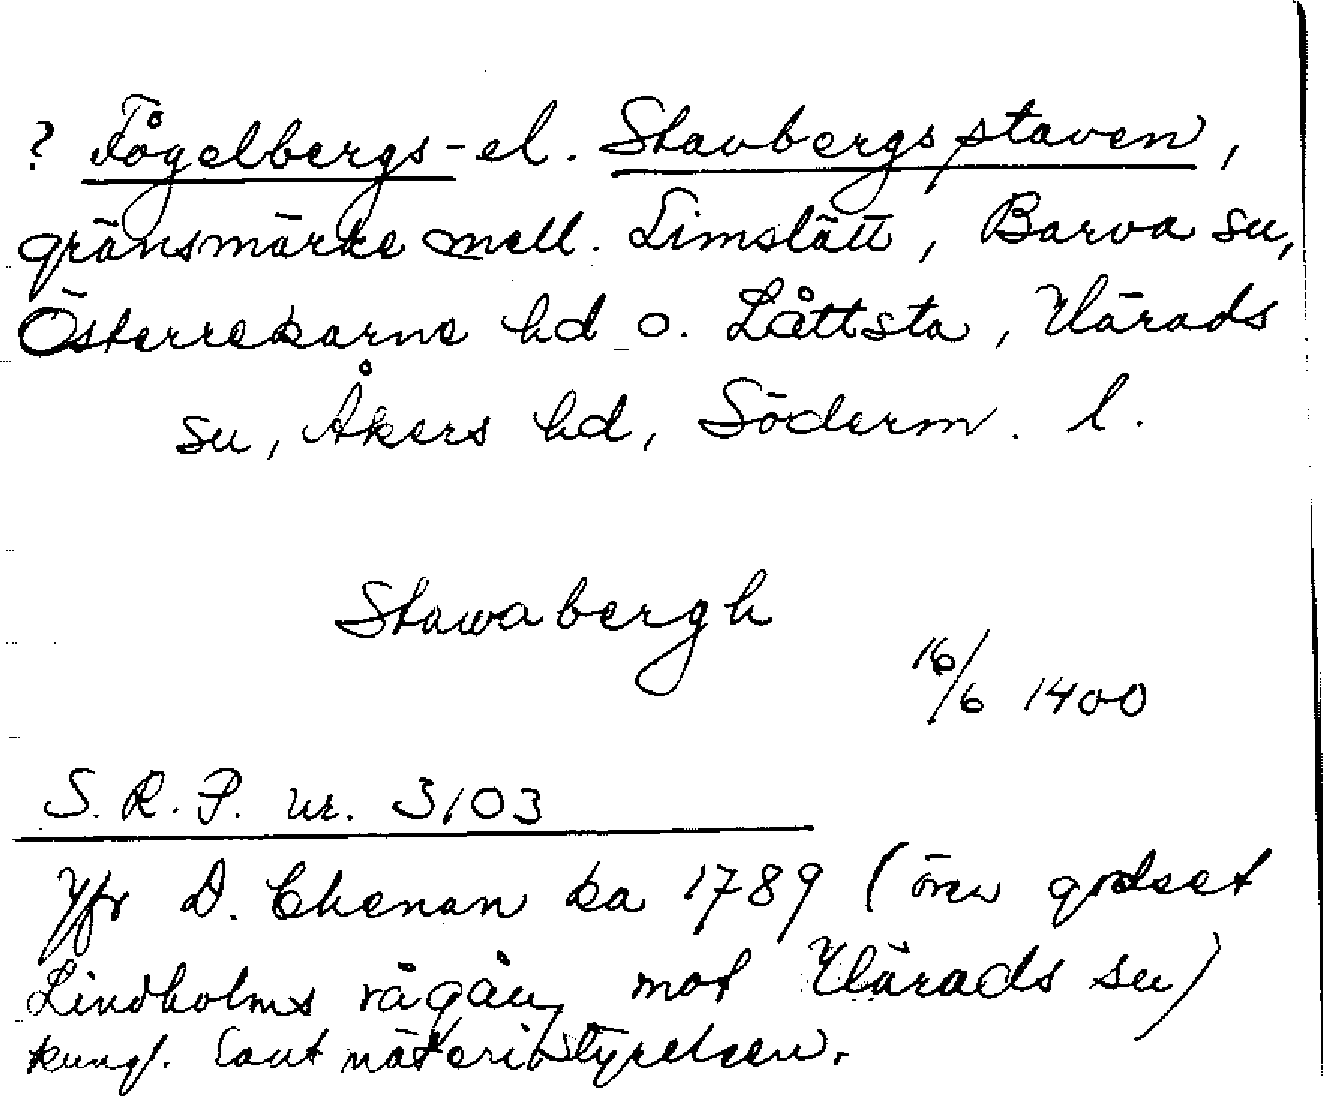 ? Fågelbergs- el. Stavbergsstaven,
gränsmärke mell. Limslätt, Barva sn,
Österrekarne hd o. Låttsta, Härads
sn, Åkers hd, Söderm. l.
Stawabergh
16/6 1400
S. R. P. nr. 3103
Jfr D. Ekenan ka 1789 (över godset
Lindholms rågång mot Härads sn)
kungl. Lantmäteristyrelsen.